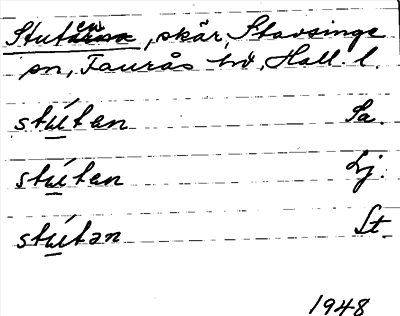 Stuten, skär, Stavsinge
sn, Faurås hd, Hall. l.
stú̲tan Sa.
stú̲tan Lj.
stú̲tən St.
1948